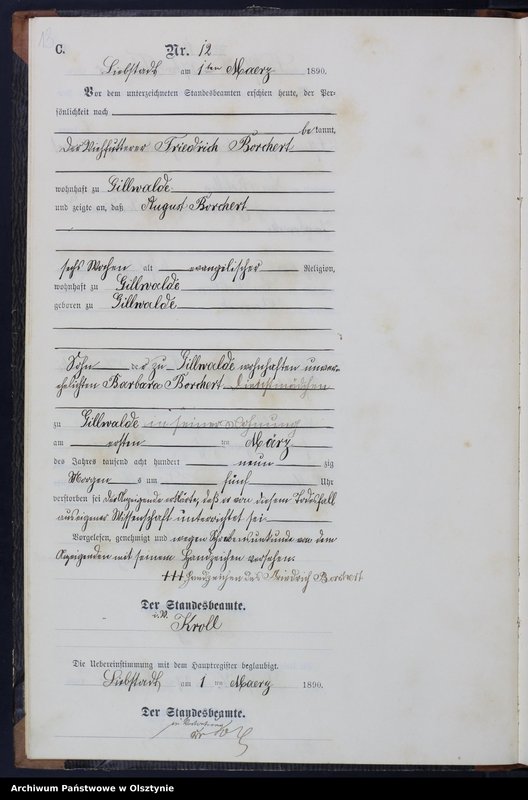 C.
Nr. 12
Liebstadt am 1ten Maerz 1890.
Vor dem unterzeichneten Standesbeamten erschien heute, der Per-
sönlichkeit nach
be kannt,
der Viehfütterer Friedrich Borchert
wohnhaft zu Gillwalde
und zeigte an, daß August Borchert
sechs Wochen alt evangelischer Religion,
wohnhaft zu Gillwalde
geboren zu Gillwalde
Sohn der zu Gillwalde wohnhaften unver-
ehelichten Barbara Borchert Dienstmädchen
zu Gillwalde in seiner Wohnung
am ersten ten März
des Jahres tausend acht hundert neun zig
Morgens um fünf Uhr
verstorben sei der Anzeigende erklärte, daß er von diesem Todesfall
aus eigener Wissenschaft unterrichtet sei.
Vorgelesen, genehmigt und wegen Schreibensunkunde von dem
Anzeigenden mit seinem Handzeichen versehen.
+++ Handzeichen des Friedrich Borchert
Der Standesbeamte.
i. V. Kroll
Die Uebereinstimmung mit dem Hauptregister beglaubigt.
Liebstadt am 1 ten Maerz 1890.
Der Standesbeamte.
in Vertretung
Archiwum Państwowe w Olsztynie